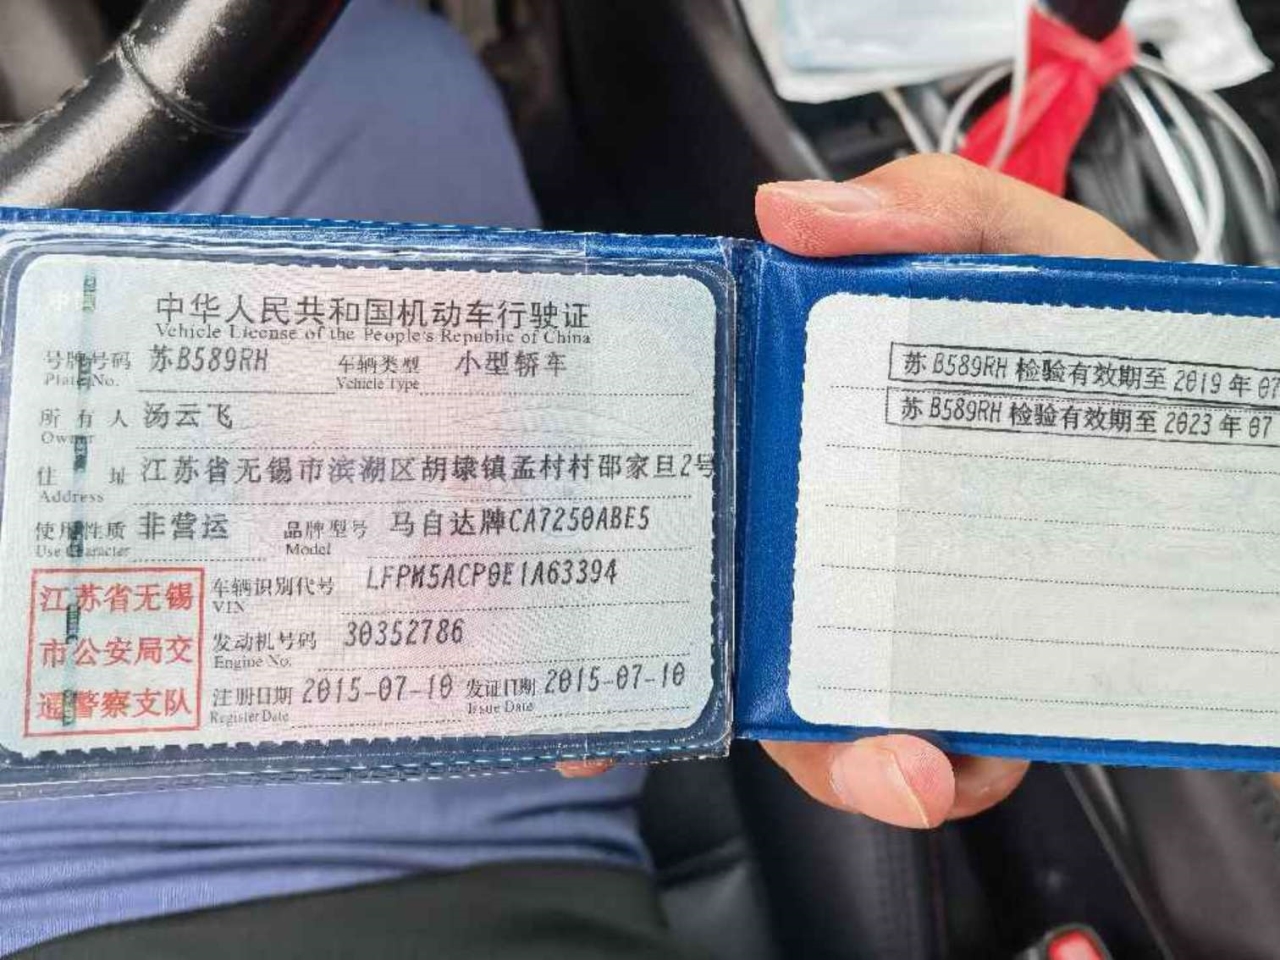 中华人民共和国机动车行驶证
Vehicle License of the People's Republic of China
号牌号码 苏B589RH 车辆类型 小型轿车
Plate No. Vehicle Type
所有人 汤云飞
Owner
住址 江苏省无锡市滨湖区胡埭镇孟村村邵家旦2号
Address
使用性质 非营运 品牌型号 马自达牌CA7250ABE5
Use Character Model
江苏省无锡
市公安局交
通警察支队
车辆识别代号 LFPM5ACP0E1A63394
VIN
发动机号码 30352786
Engine No.
注册日期 2015-07-10 发证日期 2015-07-10
Register Date Issue Date
苏B589RH 检验有效期至 2019年07
苏B589RH 检验有效期至 2023年07